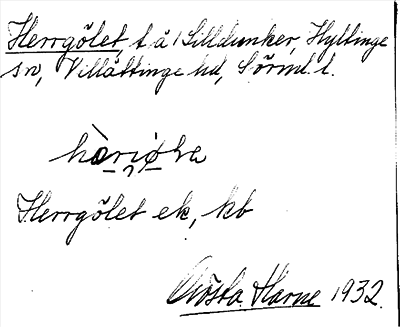 Herrgölet, t å /Silldunker, Hyltinge
sn, Villåttinge hd, Sörml. l.
Herrgölet ek, kb
Gösta Harne 1932.